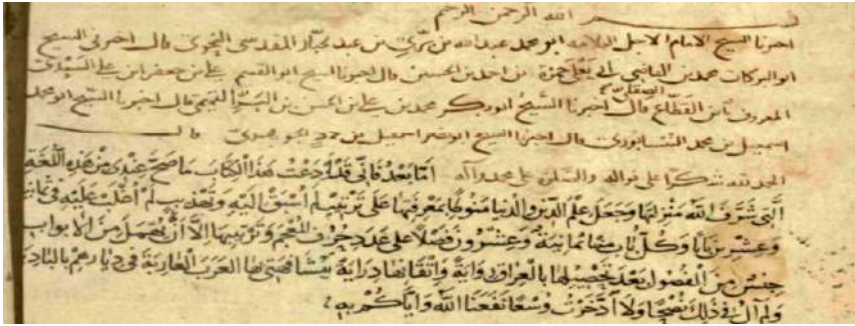 بسم الله الرحمن الرحيم
اخبرنا الشيخ الامام الاجل العلامه ابو محمد عبد الله بن بري بن عبد الجبار المقدسي النحوي قال اخبرني الشيخ
ابو البركات محمد بن القاضي ابي يعلى حمزة بن احمد بن الحسين قال اخبرنا الشيخ ابو القسم علي بن جعفر ابن علي السعدي
الصقلي
المعروف بابن القطاع قال اخبرنا الشيخ ابو بكر محمد بن علي بن الحسن بن البر التميمي قال اخبرنا الشيخ ابو محمد
اسمعيل بن محمد النيسابوري قال اخبرنا الشيخ ابو نصر اسمعيل بن حماد الجوهري قال
الحمد لله شكرا على نواله والصلاة على محمد وآله أَمَّا بَعْدُ فَإِنِّي قَدْ أَوْدَعْتُ هَذَا الْكِتَابَ مَا صَحَّ عِنْدِي مِنْ هَذِهِ اللُّغَةِ
الَّتِي شَرَّفَ اللَّهُ مَنْزِلَتَهَا وَجَعَلَ عِلْمَ الدِّينِ وَالدُّنْيَا مَنُوطًا بِمَعْرِفَتِهَا عَلَى تَرْتِيبٍ لَمْ أُسْبَقْ إِلَيْهِ وَتَهْذِيبٍ لَمْ أُغْلَبْ عَلَيْهِ فِي ثَمَانِيَةٍ
وَعِشْرِينَ بَابًا وَكُلُّ بَابٍ مِنْهَا ثَمَانِيَةٌ وَعِشْرُونَ فَصْلًا عَلَى عَدَدِ حُرُوفِ الْمُعْجَمِ وَتَرْتِيبِهَا إِلَّا أَنْ يُهْمَلَ مِنَ الْأَبْوَابِ
جِنْسٌ مِنَ الْفُصُولِ بَعْدَ تَحْصِيلِهَا بِالْعِرَاقِ رِوَايَةً وَإِتْقَانِهَا دِرَايَةً وَمُشَافَهَتِي بِهَا الْعَرَبَ الْعَارِبَةَ فِي دِيَارِهِمْ بِالْبَادِيَةِ
وَلَمْ آلُ فِي ذَلِكَ نُصْحًا وَلَا ادَّخَرْتُ وُسْعًا نَفَعَنَا اللَّهُ وَإِيَّاكُمْ بِهِ